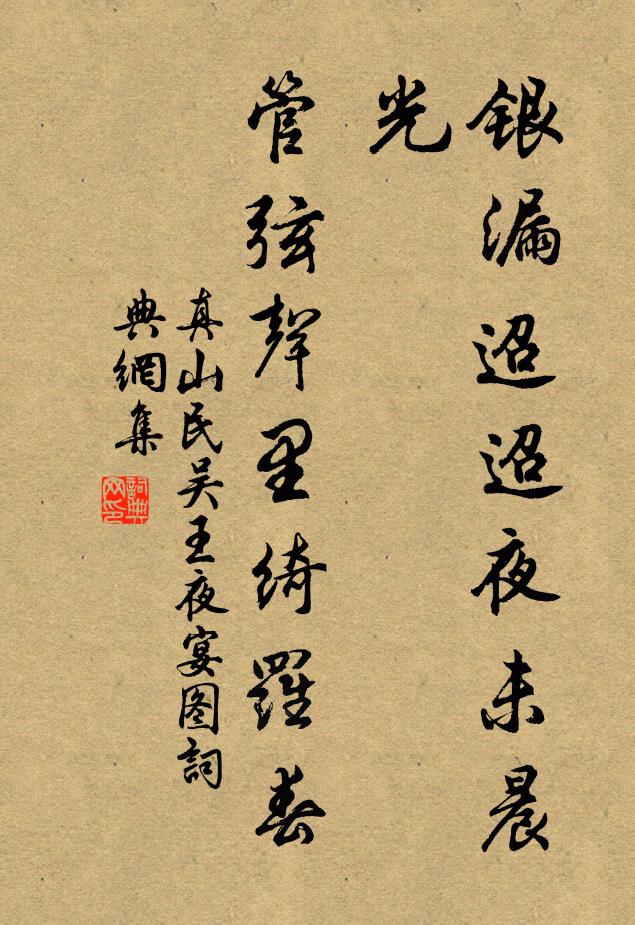 银漏迢迢夜未晨
光
管弦聲里绮羅春
真山民吴王夜宴图詞
典網集
詞典
网印